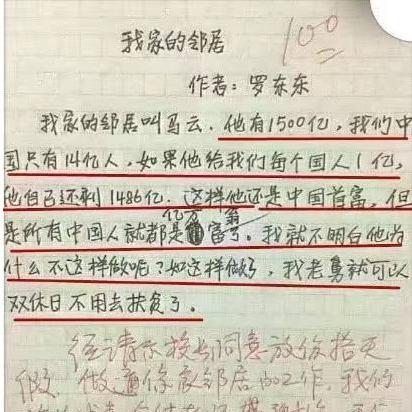 我家的邻居
100
作者：罗东东
我家的邻居叫马云．他有1500亿，我们中
国只有14亿人，如果他给我们每个国人1亿，
他自己还剩1486亿．这样他还是中国首富，但
亿万 翁
是所有中国人就都是富了。我就不明白他为
什么不这样做呢？如这样做了，我老舅就可以
双休日不用去扶贫了。
经请示校长同意放你搭天
假．做通你家邻居的工作．我们